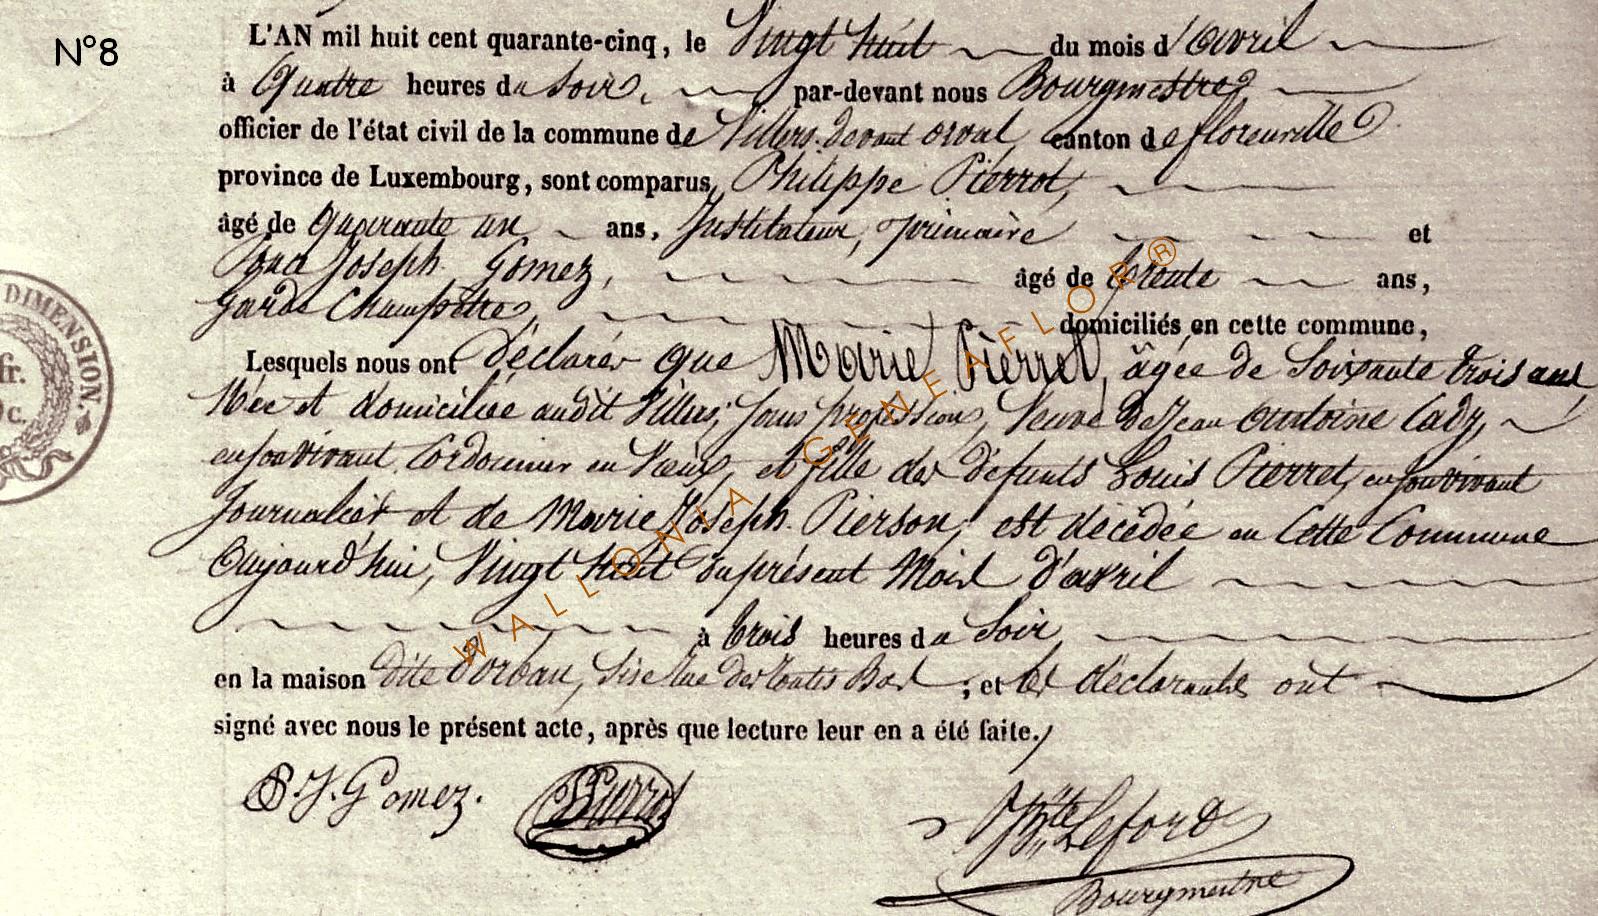 N°8
L'AN mil huit cent quarante-cinq, le Vingt huit du mois d'avril
à Quatre heures du Soir, par-devant nous Bourgmestre
officier de l'état civil de la commune de Villers-devant orval, canton de florenville
province de Luxembourg, sont comparus, Philippe Pierrot,
âgé de Quarante un ans, Instituteur, primaire et
Joseph Gomez, âgé de trente ans,
Garde Champêtre, domiciliés en cette commune,
Lesquels nous ont déclarés que Marie Pierret, âgée de Soixante trois ans,
Née et domiciliée audit Villers, sans profession, Veuve de Jean Antoine Cady,
en son vivant, Cordonnier en Vieux, et fille des défunts Louis Pierret, en son vivant
Journalier et de Marie Joseph Pierson, est décédée en Cette Commune
Aujourd'hui, Vingt huit du présent Mois d'avril
à trois heures du Soir
en la maison dite Dorban, Sise Rue des ; et les déclarants ont
signé avec nous le présent acte, après que lecture leur en a été faite./
J. Gomez. Pierrot
Leford
Bourgmestre
DIMENSION.
fr.
c.
WALLONIA GENEAFLOR®